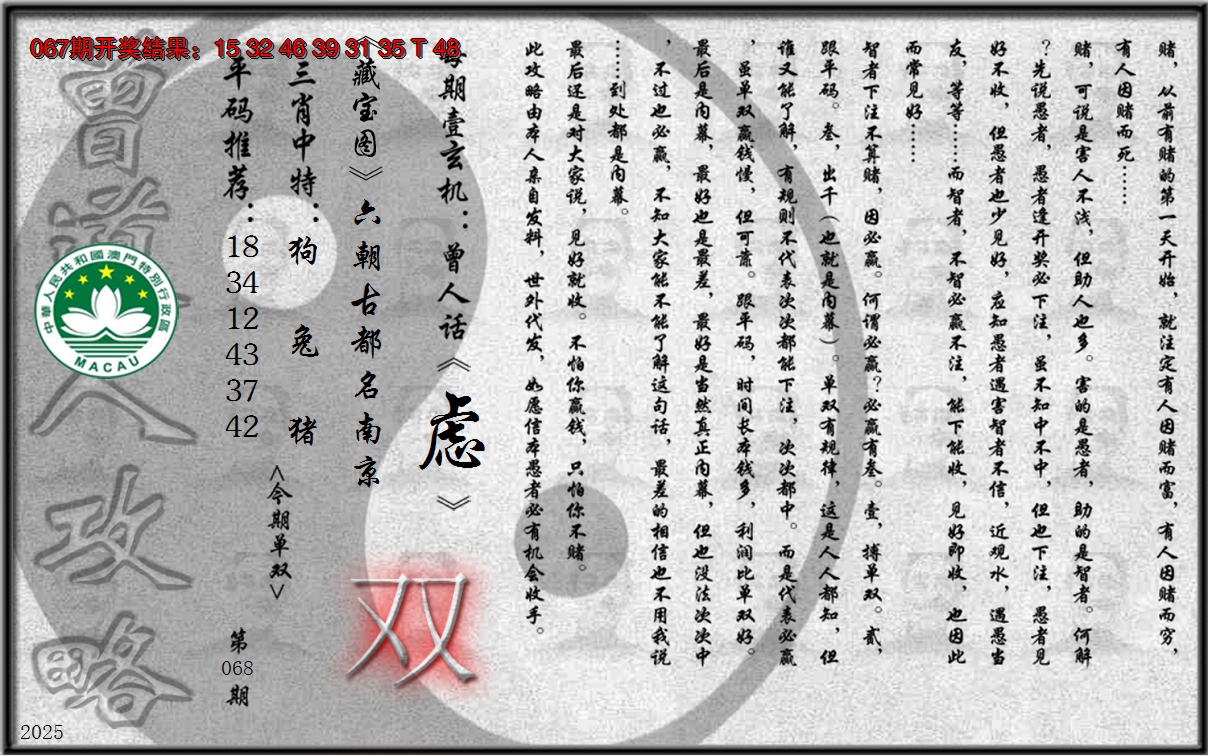 067期开奖结果：15 32 46 39 31 35 T 48
赌，从前有赌的第一天开始，就注定有人因赌而富，有人因赌而穷，
有人因赌而死……
赌，可说是害人不浅，但助人也多。害的是愚者，助的是智者。何解
？先说愚者，愚者逢开奖必下注，虽不知中不中，但也下注，愚者见
好不收，但愚者也少见好，应知愚者遇害智者不信，近观水，遇愚当
友，等等……而智者，不智必赢不注，能下能收，见好即收，也因此
而常见好……
智者下注不算赌，因必赢。何谓必赢？必赢有叁。壹，搏单双。贰，
跟平码。叁，出千（也就是内幕）。单双有规律，这是人人都知，但
谁又能了解，有规则不代表次次都能下注，次次都中。而是代表必赢
，虽单双赢钱慢，但可靠。跟平码，时间长本钱多，利润比单双好。
最后是内幕，最好也是最差，最好是当然真正内幕，但也没法次次中
，不过也必赢，不知大家能不能了解这句话，最差的相信也不用我说
……到处都是内幕。
最后还是对大家说，见好就收。不怕你赢钱，只怕你不赌。
此攻略由本人亲自发料，世外代发，如愿信本愚者必有机会收手。
每期壹玄机：曾人话《虑》
《藏宝图》六朝古都名南京
双
三肖中特：狗 兔 猪
<今期单双>
平码推荐：18 34 12 43 37 42
第068期
曾道人攻略
中華人民共和國澳門特別行政區
MACAU
2025